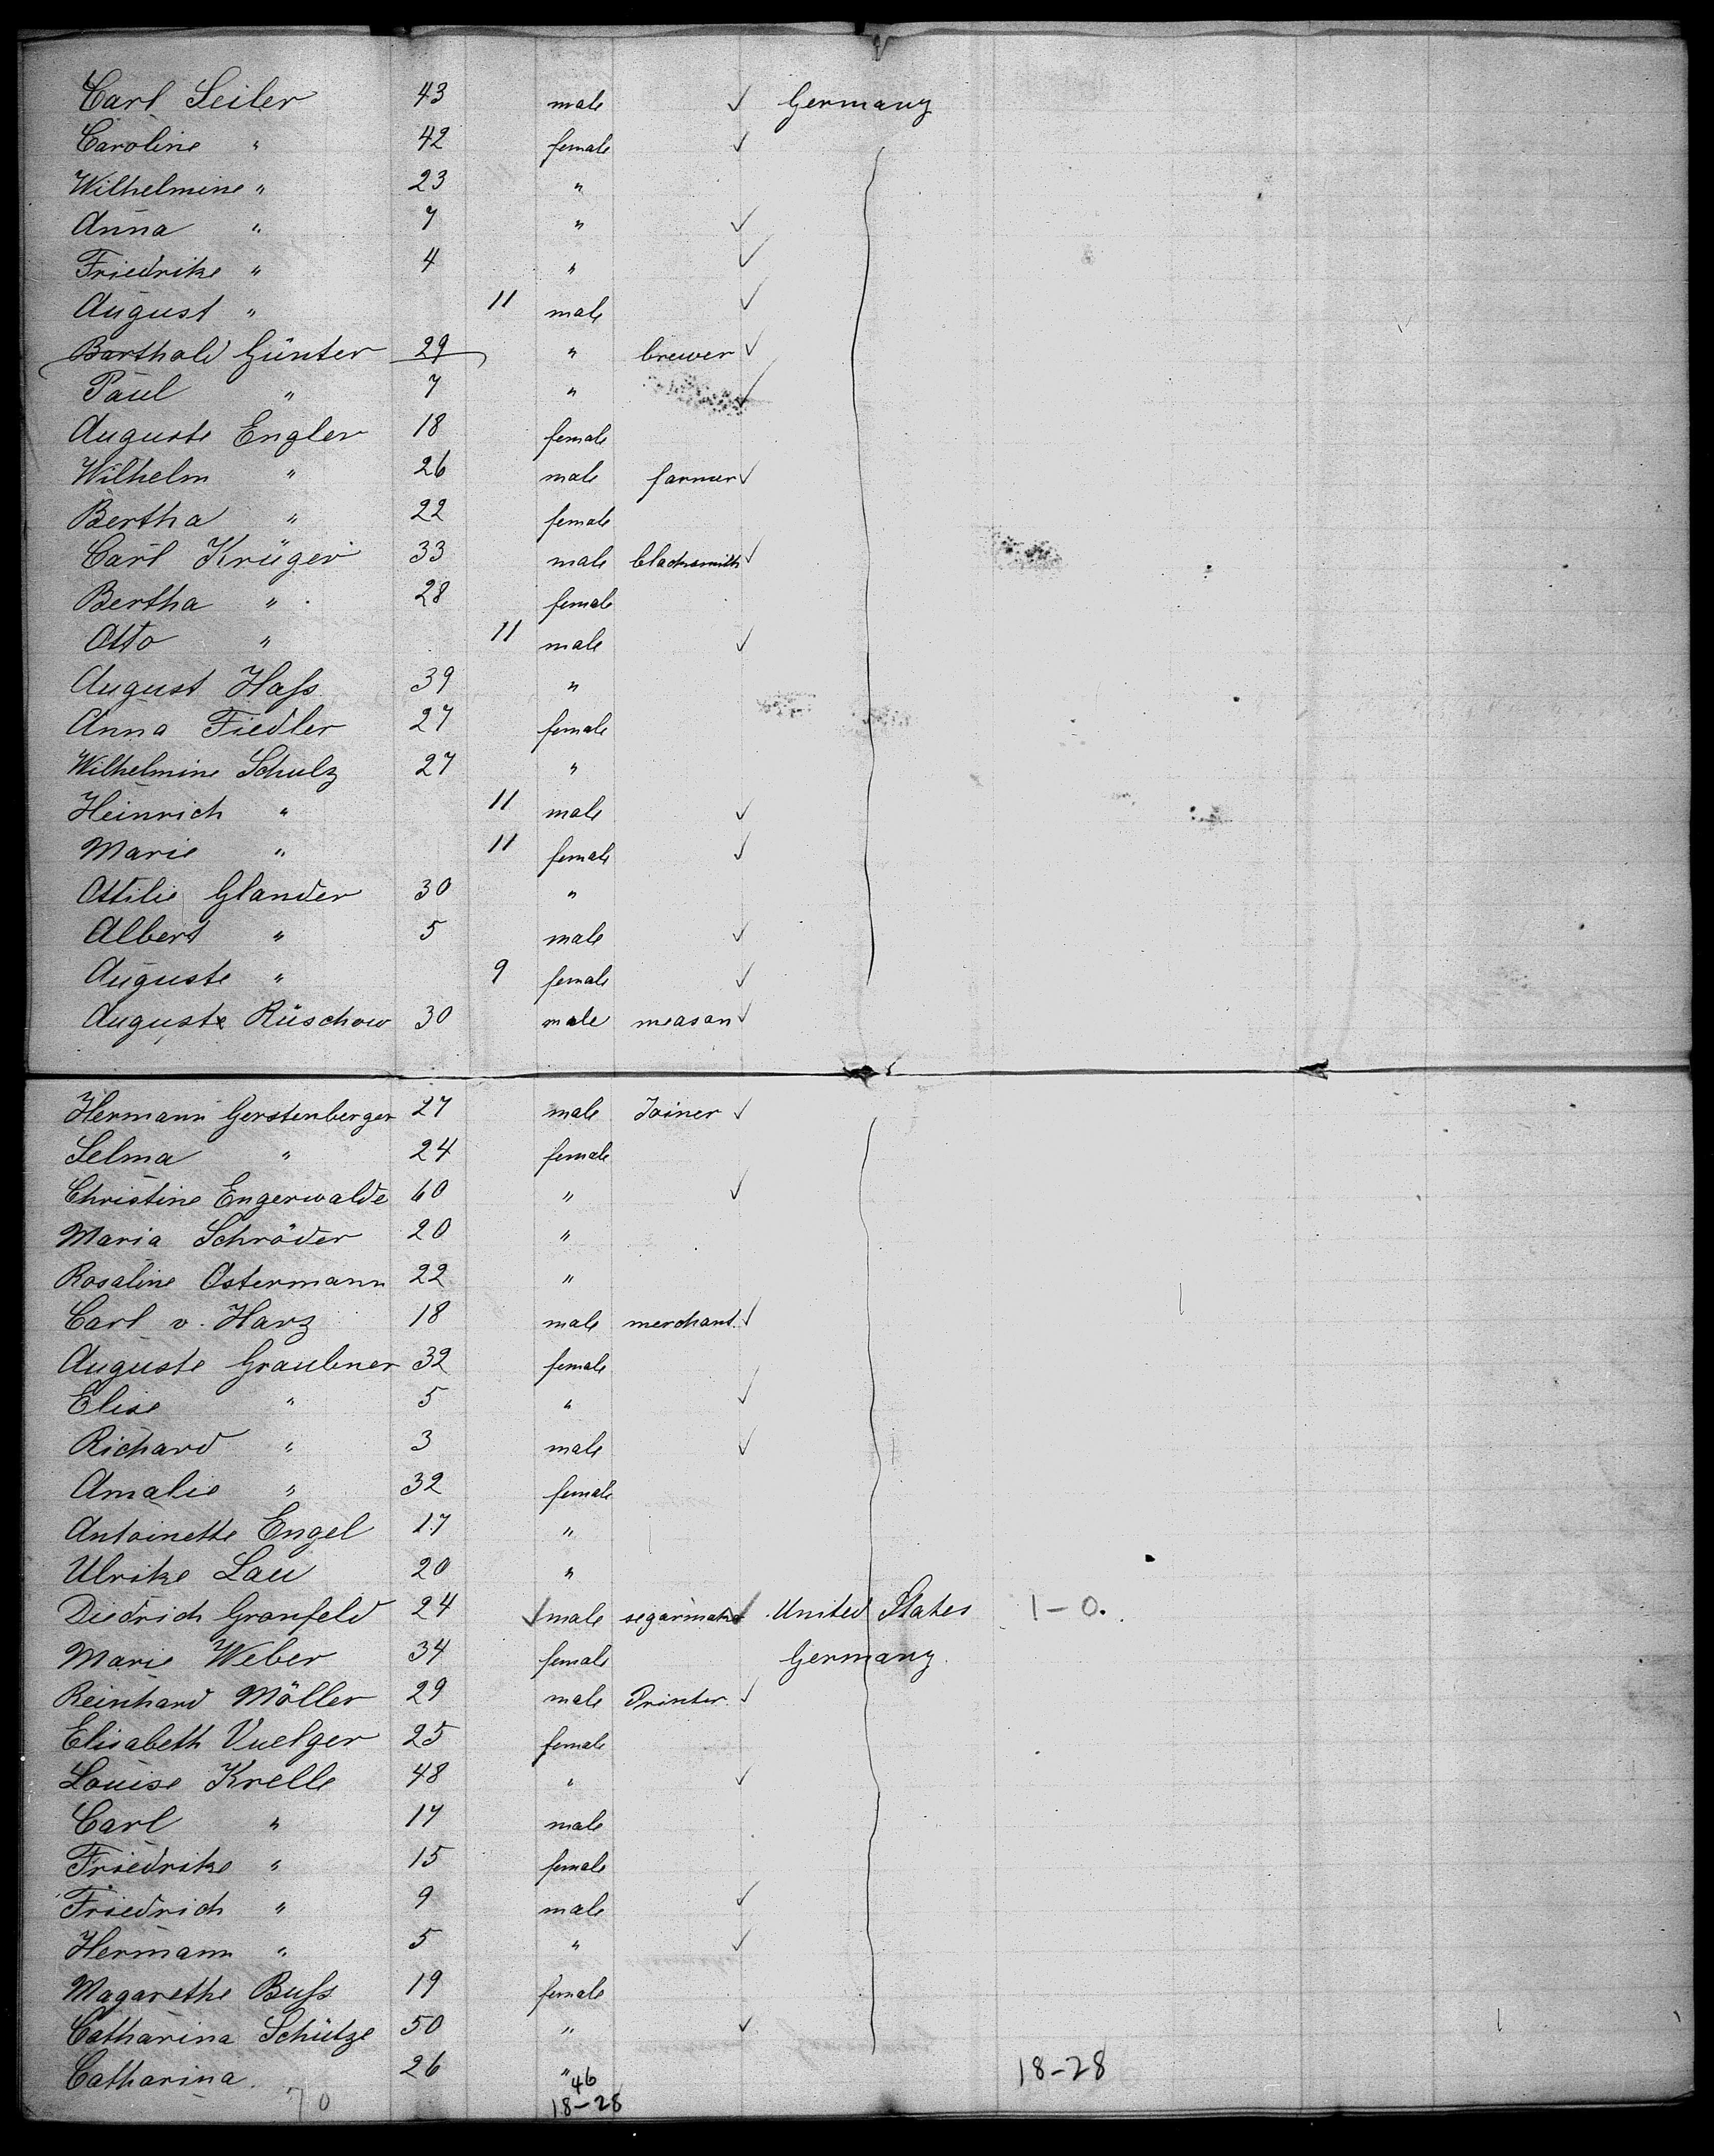 Carl Seiler 43 male ✓ Germany
Caroline " 42 female ✓
Wilhelmine " 23 "
Anna " 7 " ✓
Friedrike " 4 " ✓
August " 11 male ✓
Barthold Günter 29 " brewer ✓
Paul " 7 " ✓
Auguste Engler 18 female
Wilhelm " 26 male farmer ✓
Bertha " 22 female
Carl Krüger 33 male blacksmith ✓
Bertha " 28 female
Otto " 11 male ✓
August Haſs 39 "
Anna Fiedler 27 female
Wilhelmine Schulz 27 "
Heinrich " 11 male ✓
Marie " 11 female ✓
Ottilie Glander 30 "
Albert " 5 male ✓
Auguste " 9 female ✓
August Rüschow 30 male meason ✓
Hermann Gerstenberger 27 male Joiner ✓
Selma " 24 female
Christine Engerwalde 60 " ✓
Maria Schröder 20 "
Rosaline Ostermann 22 "
Carl v. Harz 18 male merchant. ✓
Auguste Graubner 32 female
Elise " 5 " ✓
Richard " 3 male ✓
Amalie " 32 female
Antoinette Engel 17 "
Ulrike Lau 20 "
Diedrich Granfeld 24 ✓ male segarmaker ✓ United States 1-0.
Marie Weber 34 female Germany.
Reinhard Möller 29 male Printer. ✓
Elisabeth Vuelger 25 female
Louise Krelle 48 " ✓
Carl " 17 male
Friedrike " 15 female
Friedrich " 9 male ✓
Hermann " 5 " ✓
Magarethe Buſs 19 female
Catharina Schütze 50 " ✓
Catharina. 26 " 18-28
70 46
18-28